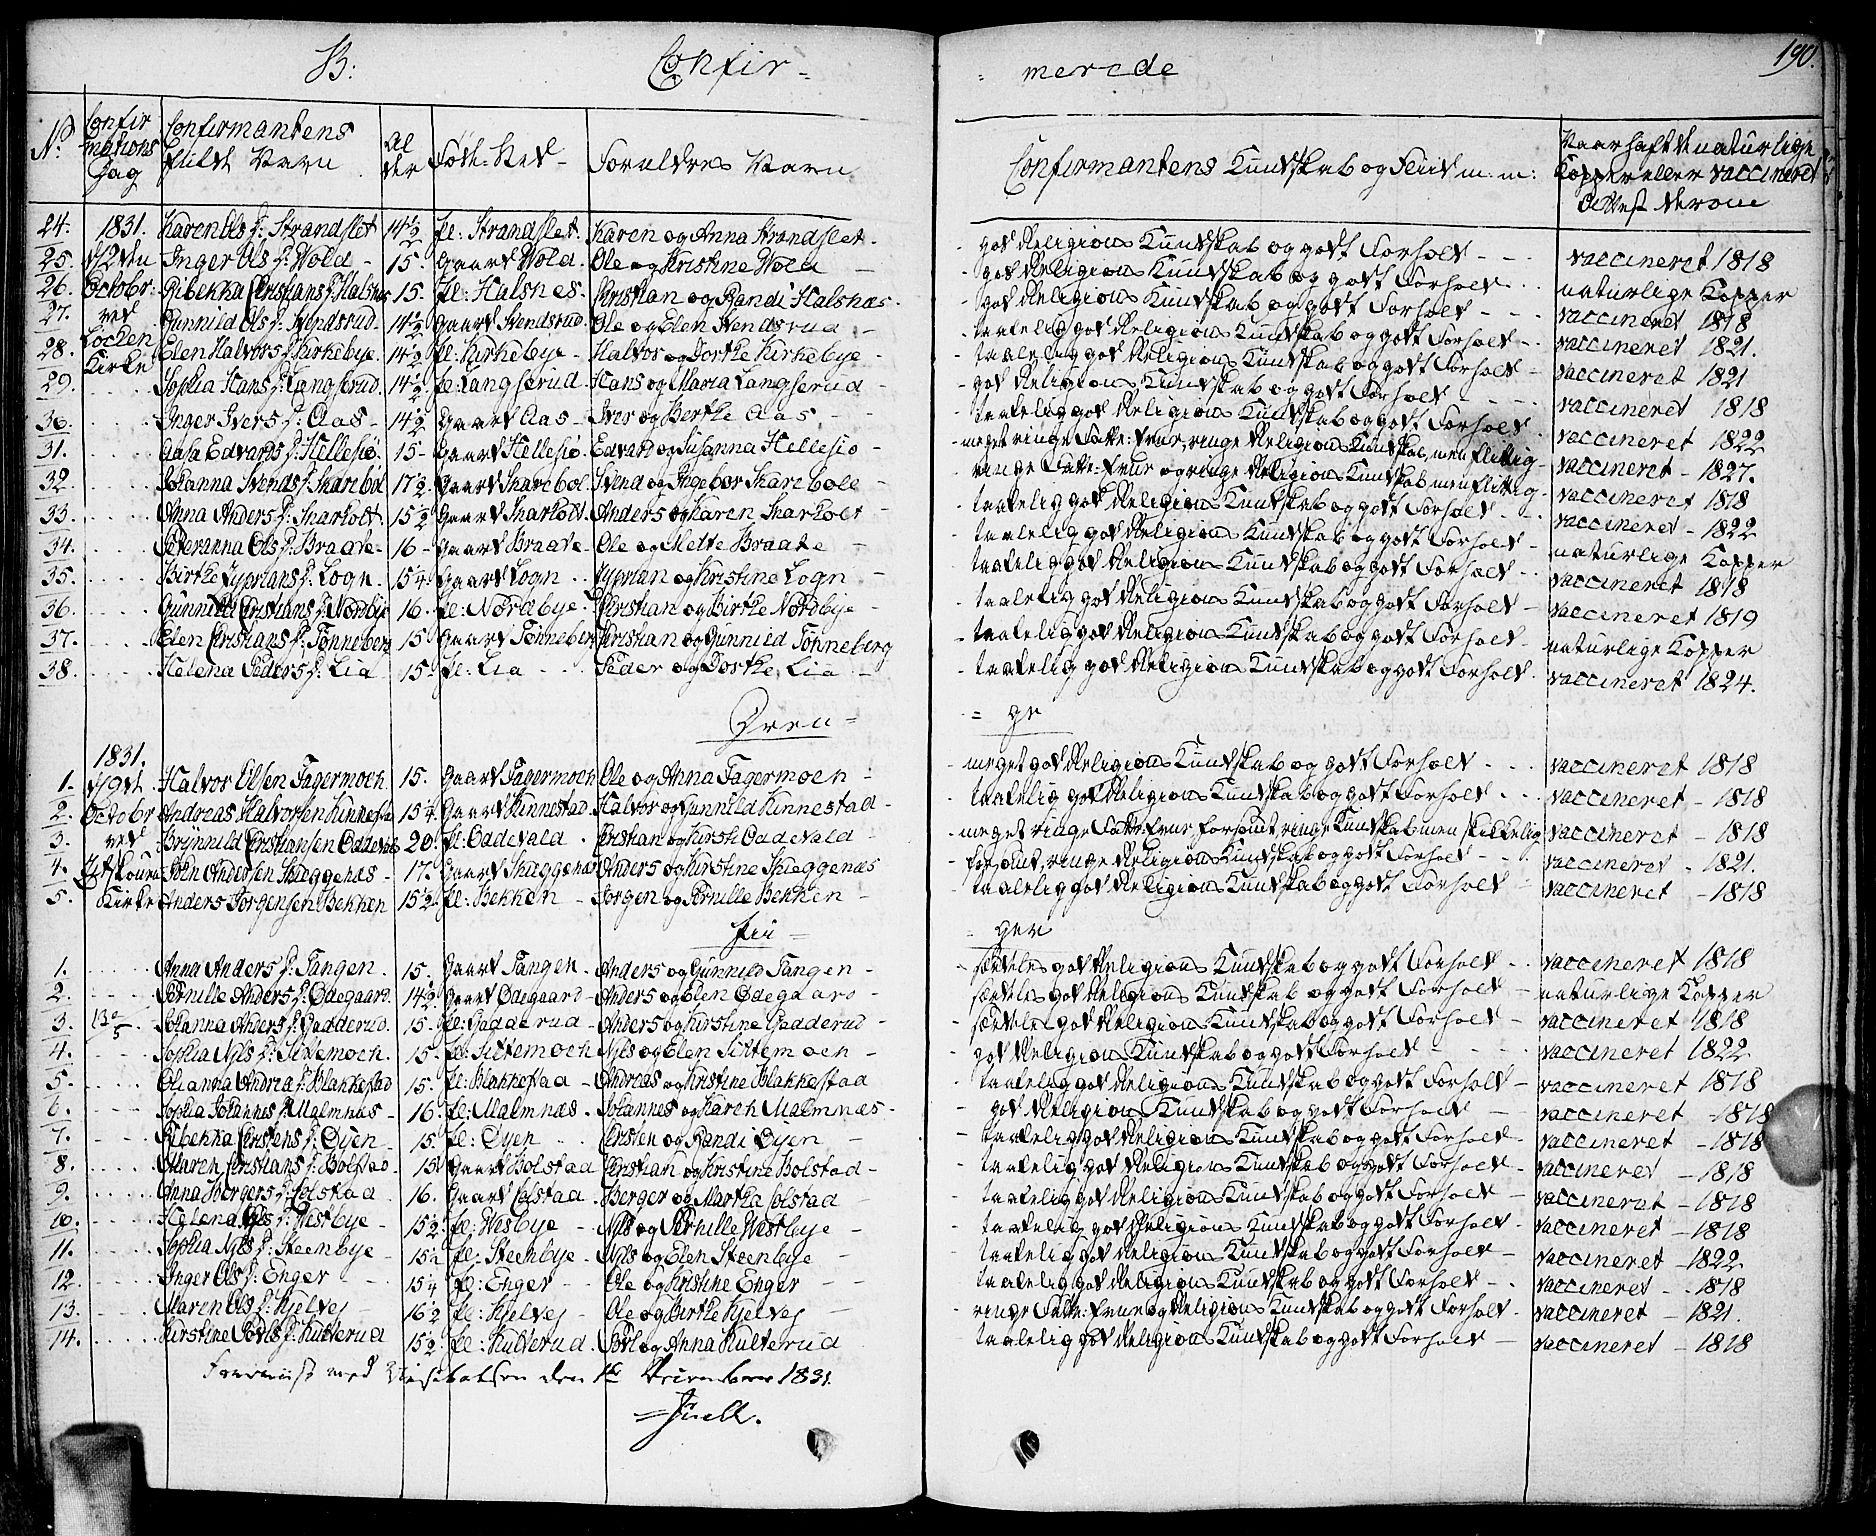 B: Confir-
= merede 190.
No. Confirmations Dag Confirmantens fulde Navn Alder Føde-Sted Forældres Navn Confirmantens Kundskab og Fliid m: m: Naar haft de naturlige Kopper eller vaccineret
24. 1831. Karen Ols D: Strandslet 14½ Pl: Strandslet. Karen og Anna Strandslet. god Religions Kundskab og godt Forhold vaccineret 1818
25. d 2den Inger Ols D: Wold 15. Gaard Wold. Ole og Kristine Wold god Religions Kundskab og godt Forhold naturlige Kopper
26. Octobr: Ribekka Christians D: Halsnes 15. Pl: Halsnes. Christian og Randi Halsnæs. god Religions Kundskab og godt Forhold vaccineret 1818
27. ved Gunnild Ols D: Svendsrud. 14½ Gaard Svendsrud. Ole og Elen Svendsrud taalelig god Religions Kundskab og godt Forhold vaccineret 1821.
28. Locken Elen Halvors D: Kirkebye. 14½ Pl: Kirkebye Halvor og Dorthe Kirkebye taalelig god Religions Kundskab og godt Forhold vaccineret 1821
29. Kirke Sophia Hans D: Langserud. 14½ Pl: Langserud. Hans og Maria Langserud god Religions Kundskab og godt Forhold vaccineret 1818
30. Inger Ivers D: Aas 14½ Gaard Aas Iver og Berthe Aas taalelig god Religions Kundskab og godt Forhold vaccineret 1822
31. Aasa Edvards D: Hellesiø. 15 Gaard Hellesiø. Edvard og Susanna Hellesiø meget ringe Fatte: Evne, ringe Religions Kundskab, men flittig vaccineret 1827.
32. Johanna Svends D: Skarebøl 17½ Gaard Skarebøl. Svend og Ingebor Skarebøle ringe Fatte: Evne og ringe Religions Kundskab men flittig vaccineret 1818
33. Anna Anders D: Skarholt. 15½ Gaard Skarholt. Anders og Karen Skarholt taalelig god Religions Kundskab og godt Forhold vaccineret 1822
34. Peteranna Ols D: Braate 16 Gaard Braate Ole og Mette Braate taalelig god Religions Kundskab og godt Forhold naturlige Kopper
35. Birthe Cyprians D: Logn 15¼ Gaard Logn Cyprian og Kristine Logn taalelig god Religions Kundskab og godt Forhold vaccineret 1818
36. Gunnild Christians D: Nordbye 16. Pl: Nordbye. Christian og Birthe Nordbye taalelig god Religions Kundskab og godt Forhold vaccineret 1819
37. Elen Christians D: Tønneberg 15 Gaard Tønneberg Christian og Gunnild Tønneberg taalelig god Religions Kundskab og godt Forhold naturlige Kopper
38. Helena Peders D: Lia 15. Pl: Lia Peder og Dorthe Lia taalelig god Religions Kundskab og godt Forhold. vaccineret 1824.
Dren= = ge
1831.
1. d 9de Halvor Olsen Fagermoen 15. Gaard Fagermoen Ole og Anna Fagermoen meget god Religions Kundskab og godt Forhold vaccineret 1818
2. Octobr Andreas Halvorsen Kinnestad 15¼ Gaard Kinnestad Halvor og Gunnild Kinnestad taalelig god Religions Kundskab og godt Forhold vaccineret 1818
3. ved Brynnild Christiansen Oadevald 20. Pl: Oadevald. Christian og Kirsti Oadevald meget ringe Fatte: Evne forsømt, ringe Kundskab men skikkelig vaccineret 1818
4. John Andersen Skieggenæs 17. Gaard Skieggenæs Anders og Kirstine Skieggenæs forsømt, ringe Religions Kundskab og godt Forhold vaccineret 1821.
5. Kirke Anders Jørgensen Bekken 15½. Pl: Bekken Jørgen og Pernille Bekken taalelig god Religions Kundskab og godt Forhold vaccineret 1818
Pii= = ger
1. Anna Anders D: Tangen. 15. Gaard Tangen Anders og Gunnild Tangen særdeles god Religions Kundskab og godt Forhold vaccineret 1818
2. Pernille Anders D: Ødegaard. 14½ Gaard Ødegaard Anders og Elen Ødegaard særdeles god Religions Kundskab og godt Forhold naturlige Kopper
3. Johanna Anders D: Gadderud. 15. Pl: Gadderud Anders og Kirstine Gadderud særdeles god Religions Kundskab og godt Forhold vaccineret 1818
4. Sophia Nyls D: Sittemoen. 15. Pl: Sittemoen Nyls og Elen Sittemoen god Religions Kundskab og godt Forhold vaccineret 1822
5. Olianna Andria D: Blakkestad 15. Pl: Blakkestad Andreas og Kristine Blakkestad taalelig god Religions Kundskab og godt Forhold vaccineret 1818
6. Sophia Johannes D: Malmnæs 16. Pl: Malmnæs Johannes og Karen Malmnæs god Religions Kundskab og godt Forhold vaccineret 1818
7. Ribekka Cristens D: Øyen 15. Pl: Øyen Cristen og Randi Øyen taalelig god Religions Kundskab og godt Forhold vaccineret 1818
8. Maren Cristians D: Bolstad 15 Gaard Bolstad Christian og Kristine Bolstad taalelig god Religions Kundskab og godt Forhold vaccineret 1818
9. Anna Bergers D: Colstad 16. Gaard Colstad. Berger og Martha Colstad taalelig god Religions Kundskab og godt Forhold vaccineret 1818
10. Helena Nyls D: Westbye 15½. Pl: Wesbye Nyls og Pernille Westbye taalelig god Religions Kundskab og godt Forhold vaccineret 1818
11. Sophia Nyls D: Steenbye 15½ Pl: Steenbye Nyls og Elen Steenbye taalelig god Religions Kundskab og godt Forhold vaccineret 1822
12. Inger Ols D: Enger 15¼ Pl: Enger Ole og Kirstine Enger taalelig god Religions Kundskab og godt Forhold vaccineret 1818
13. Maren Ols D: Kjelvej 16½ Pl: Kjelvej Ole og Birthe Kjelvej ringe Fatte: Evne og Religions Kundskab og godt Forhold vaccineret 1821.
14. Kirstine Povls D: Kulterud 15½. Pl: Kulterud. Povl og Anna Kulterud taalelig god Religions Kundskab og godt Forhold vaccineret 1818
Foreviist ved Visitatsen den 1831.
Juell.